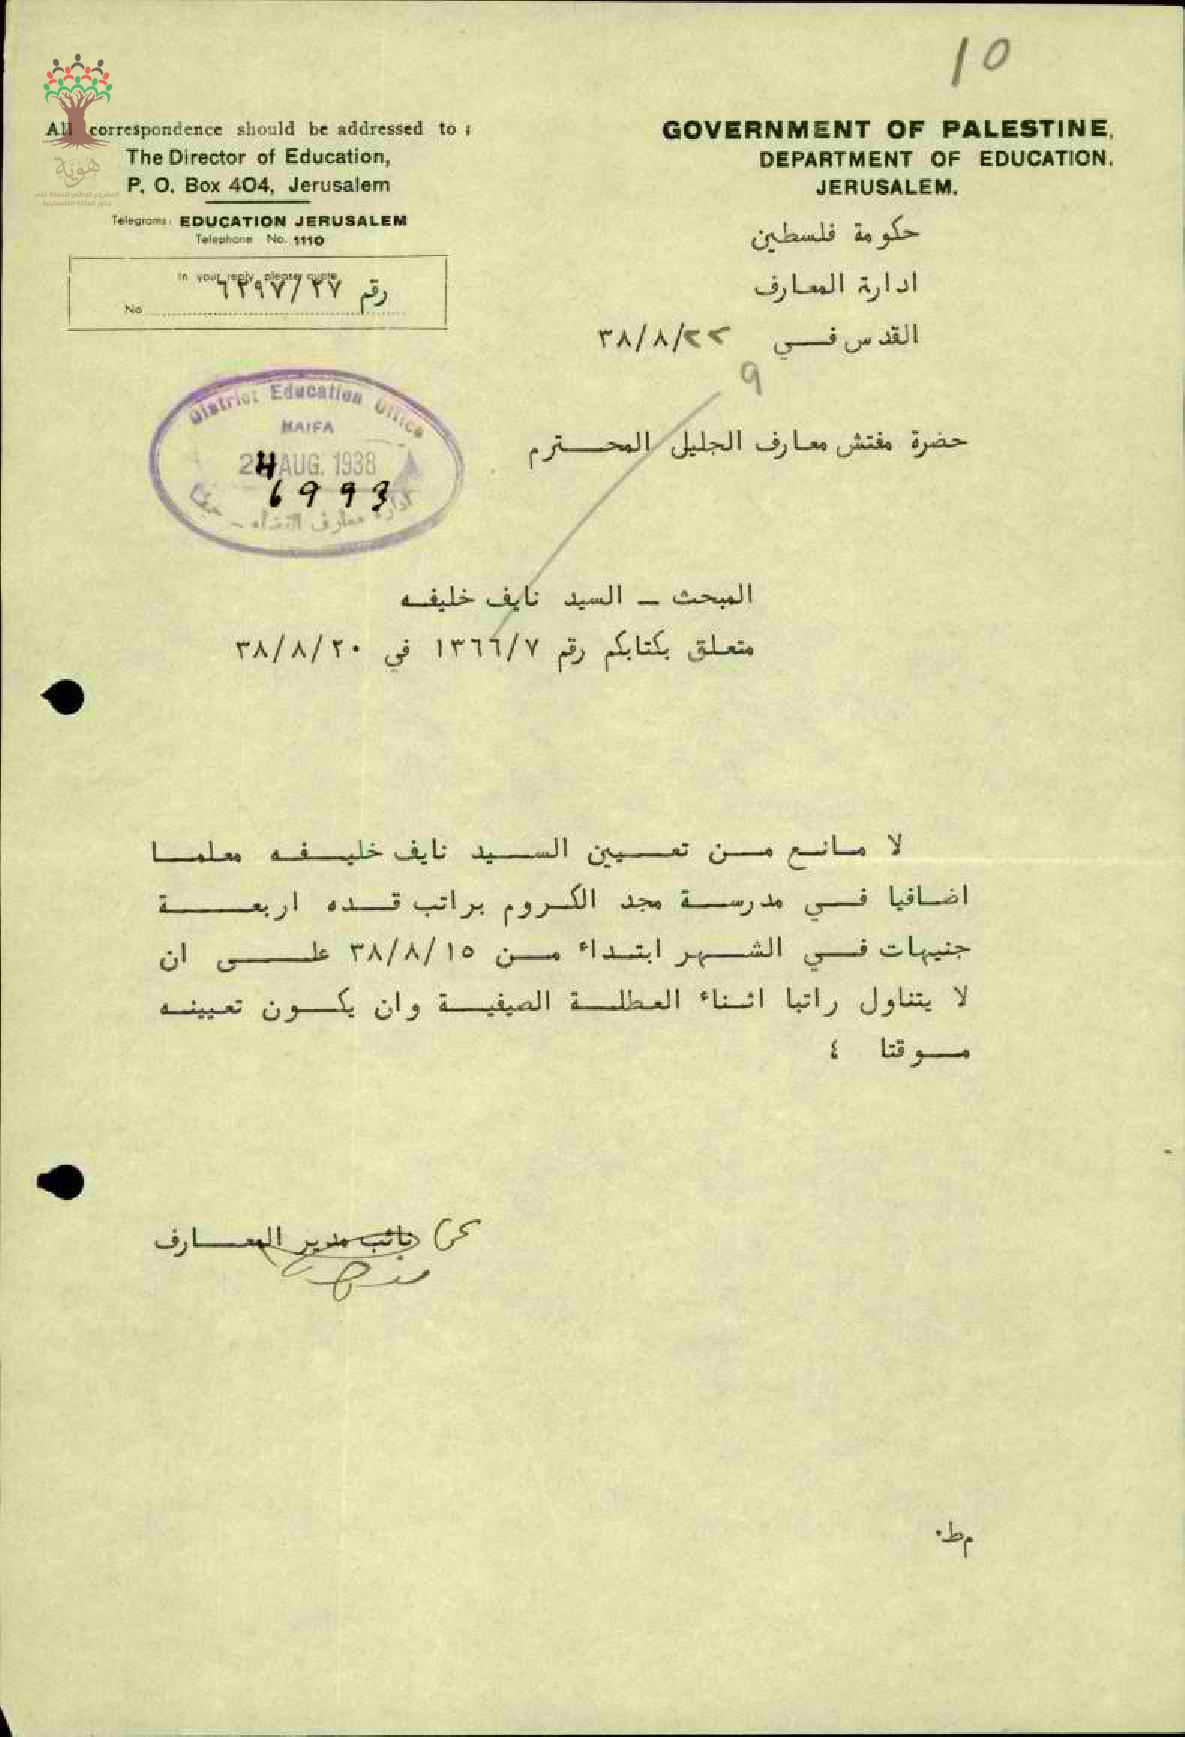 10
All correspondence should be addressed to :
The Director of Education,
P. O. Box 404, Jerusalem
Telegrams: EDUCATION JERUSALEM
Telephone No. 1110
In your reply please quote
No رقم ٦٢٩٧/٢٧
GOVERNMENT OF PALESTINE,
DEPARTMENT OF EDUCATION,
JERUSALEM.
حكومة فلسطين
ادارة المعارف
القدس في ٣٨/٨/٢٢
9
هوية
District Education Office
HAIFA
24 AUG. 1938
6993
حضرة مفتش معارف الجليل المحترم
المبحث - السيد نايف خليفه
متعلق بكتابكم رقم ١٣٦٦/٧ في ٣٨/٨/٢٠
لا مانع من تعيين السيد نايف خليفه معلما
اضافيا في مدرسة مجد الكروم براتب قده اربعة
جنيهات في الشهر ابتداء من ٣٨/٨/١٥ على ان
لا يتناول راتبا اثناء العطلة الصيفية وان يكون تعيينه
موقتا ٤
نائب مدير المعارف
م ط٠